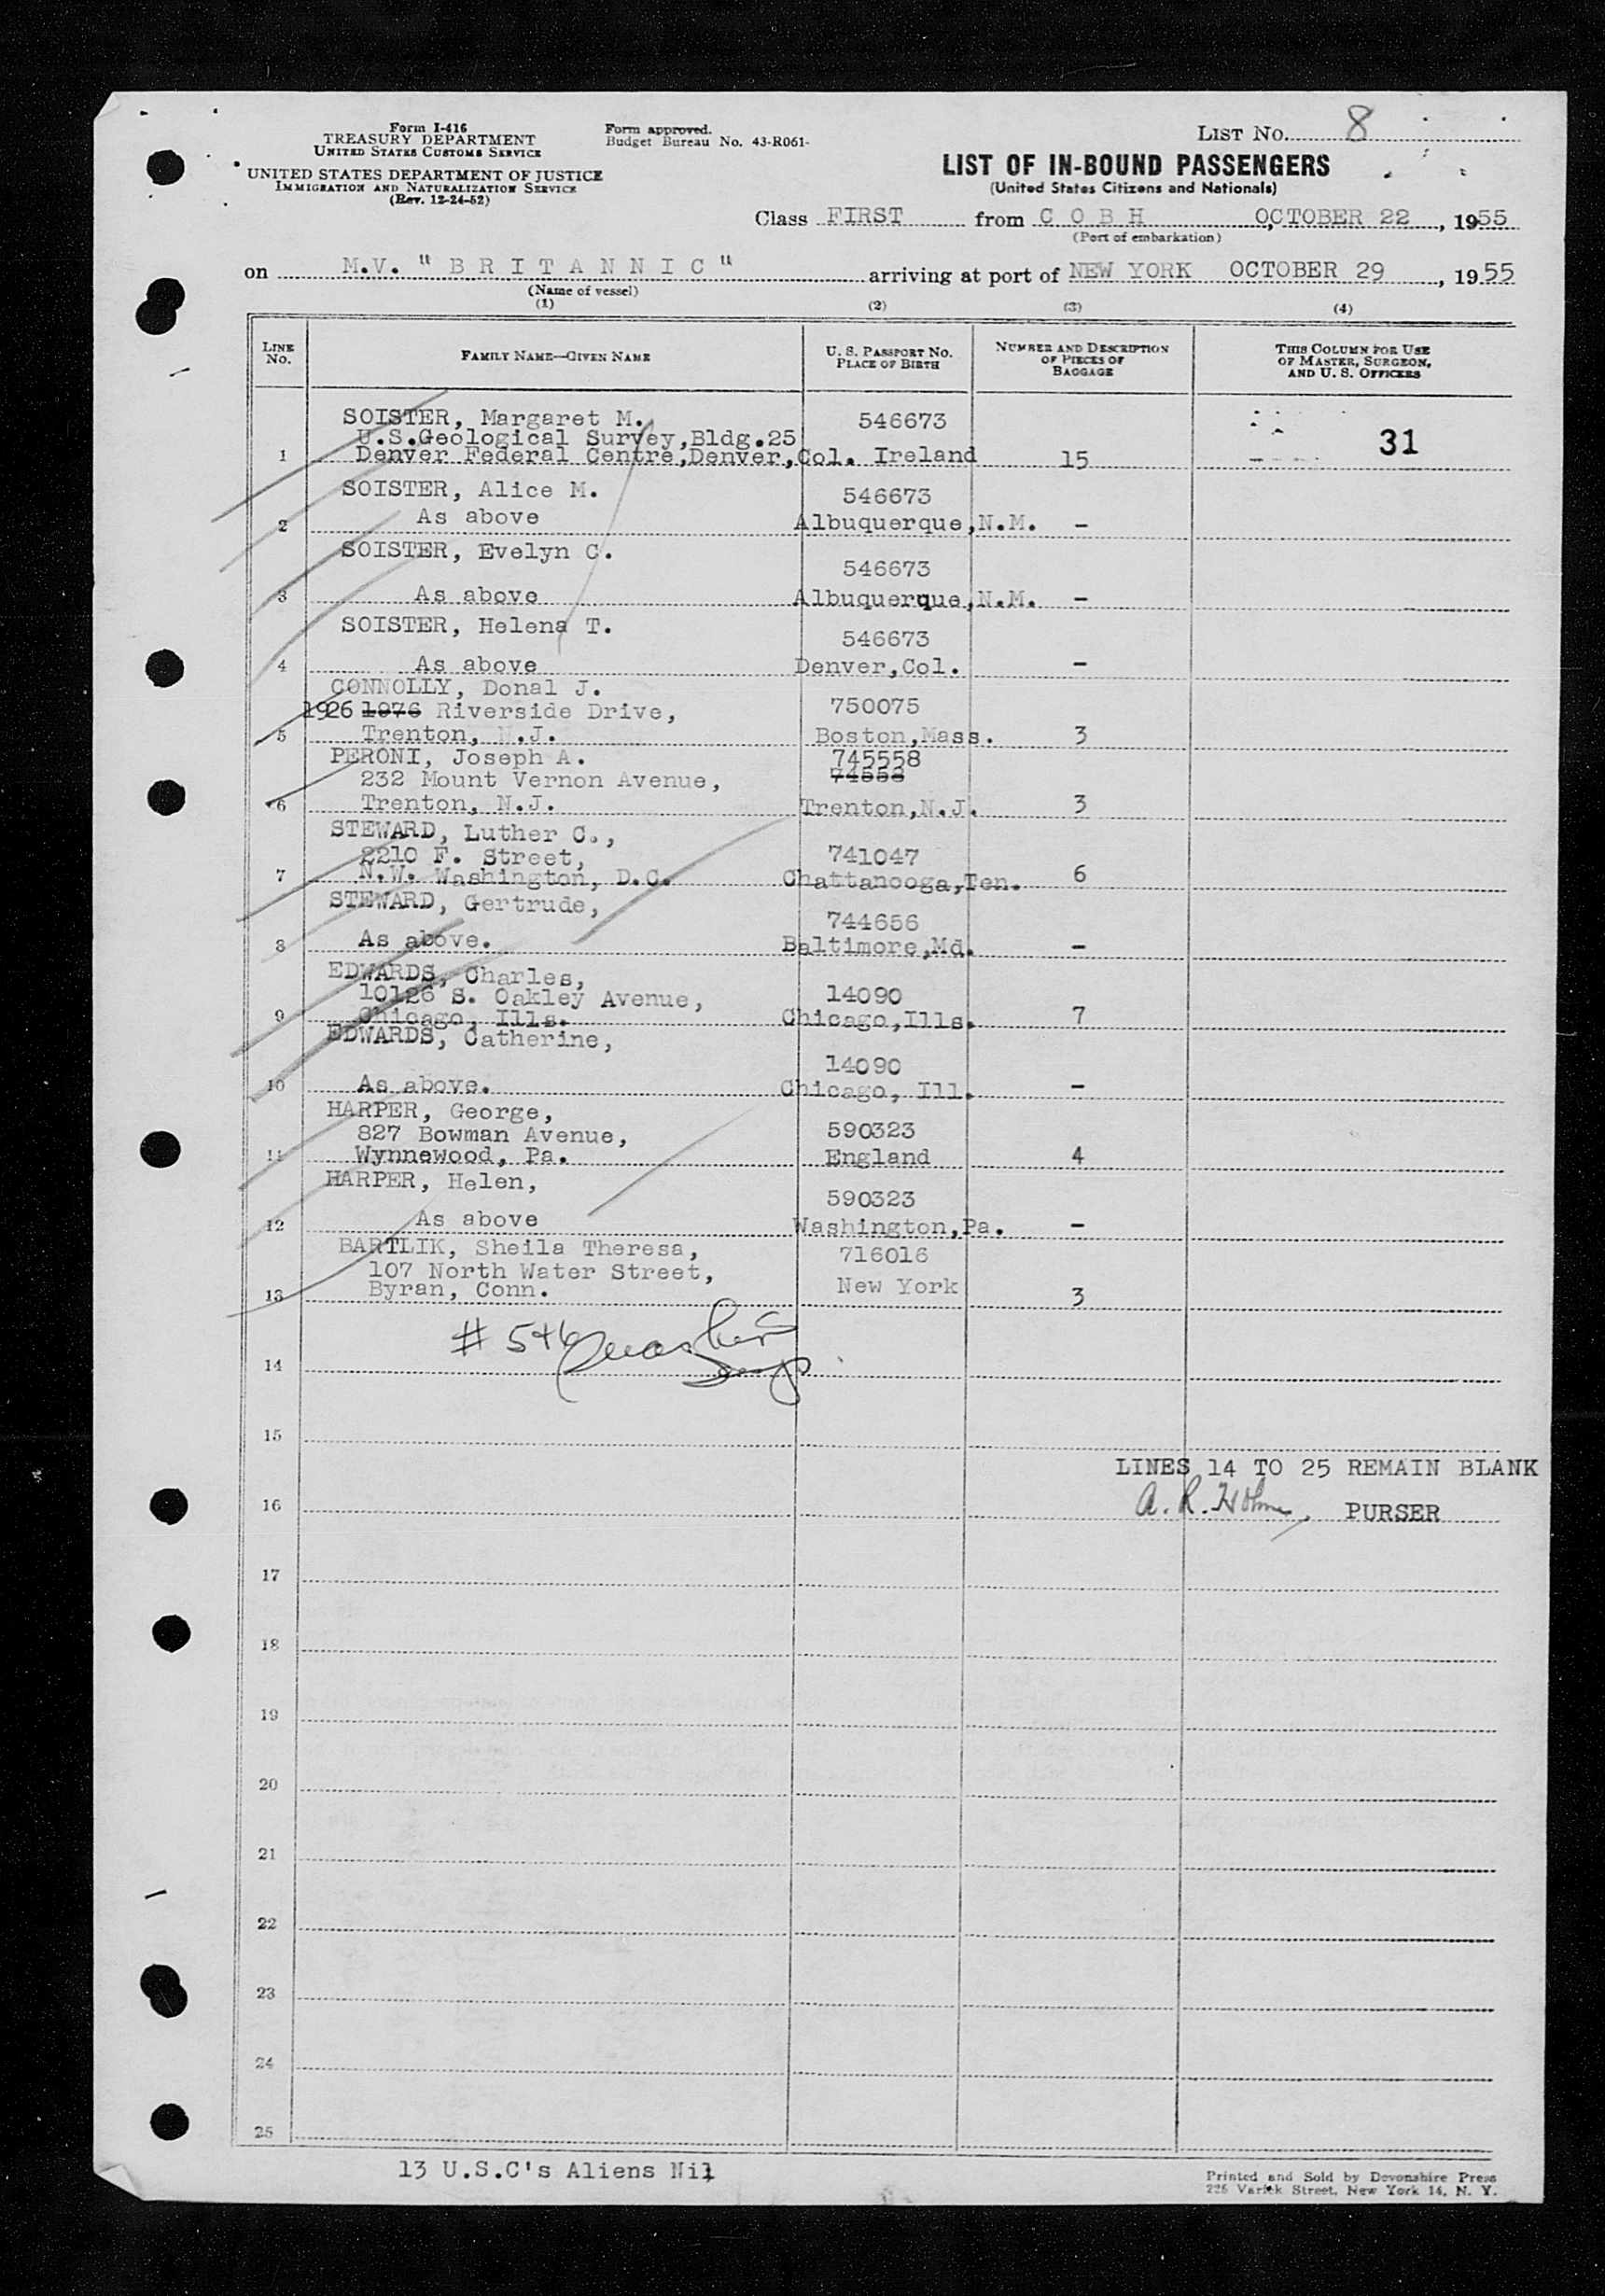 Form I-416
TREASURY DEPARTMENT
UNITED STATES CUSTOMS SERVICE
UNITED STATES DEPARTMENT OF JUSTICE
IMMIGRATION AND NATURALIZATION SERVICE
(Rev. 12-24-52)
Form approved.
Budget Bureau No. 43-R061-
LIST No. 8
LIST OF IN-BOUND PASSENGERS
(United States Citizens and Nationals)
Class FIRST from C O B H, OCTOBER 22, 1955
(Port of embarkation)
on M.V. "B R I T A N N I C" arriving at port of NEW YORK OCTOBER 29, 1955
(Name of vessel)
(1) (2) (3) (4)
LINE NO. FAMILY NAME—GIVEN NAME U. S. PASSPORT NO. PLACE OF BIRTH NUMBER AND DESCRIPTION OF PIECES OF BAGGAGE THIS COLUMN FOR USE OF MASTER, SURGEON, AND U. S. OFFICERS
SOISTER, Margaret M. 546673
U.S.Geological Survey,Bldg.25 31
1 Denver Federal Centre,Denver,Col. Ireland 15
SOISTER, Alice M. 546673
2 As above Albuquerque,N.M. -
SOISTER, Evelyn C. 546673
3 As above Albuquerque,N.M. -
SOISTER, Helena T. 546673
4 As above Denver,Col. -
CONNOLLY, Donal J.
1926 1976 Riverside Drive, 750075
5 Trenton, N.J. Boston,Mass. 3
PERONI, Joseph A. 745558
232 Mount Vernon Avenue, 74558
6 Trenton, N.J. Trenton,N.J. 3
STEWARD, Luther C.,
2210 F. Street, 741047
7 N.W. Washington, D.C. Chattanooga,Ten. 6
STEWARD, Gertrude, 744656
8 As above. Baltimore,Md. -
EDWARDS, Charles,
10126 S. Oakley Avenue, 14090
9 Chicago, Ills. Chicago,Ills. 7
EDWARDS, Catherine, 14090
10 As above. Chicago, Ill. -
HARPER, George,
827 Bowman Avenue, 590323
11 Wynnewood, Pa. England 4
HARPER, Helen, 590323
12 As above Washington,Pa. -
BARTLIK, Sheila Theresa, 716016
107 North Water Street, New York
13 Byran, Conn. 3
# 546
14
15
LINES 14 TO 25 REMAIN BLANK
16 A. R. Holme, PURSER
17
18
19
20
21
22
23
24
25
13 U.S.C's Aliens Nil
Printed and Sold by Devonshire Press
225 Varick Street, New York 14, N. Y.